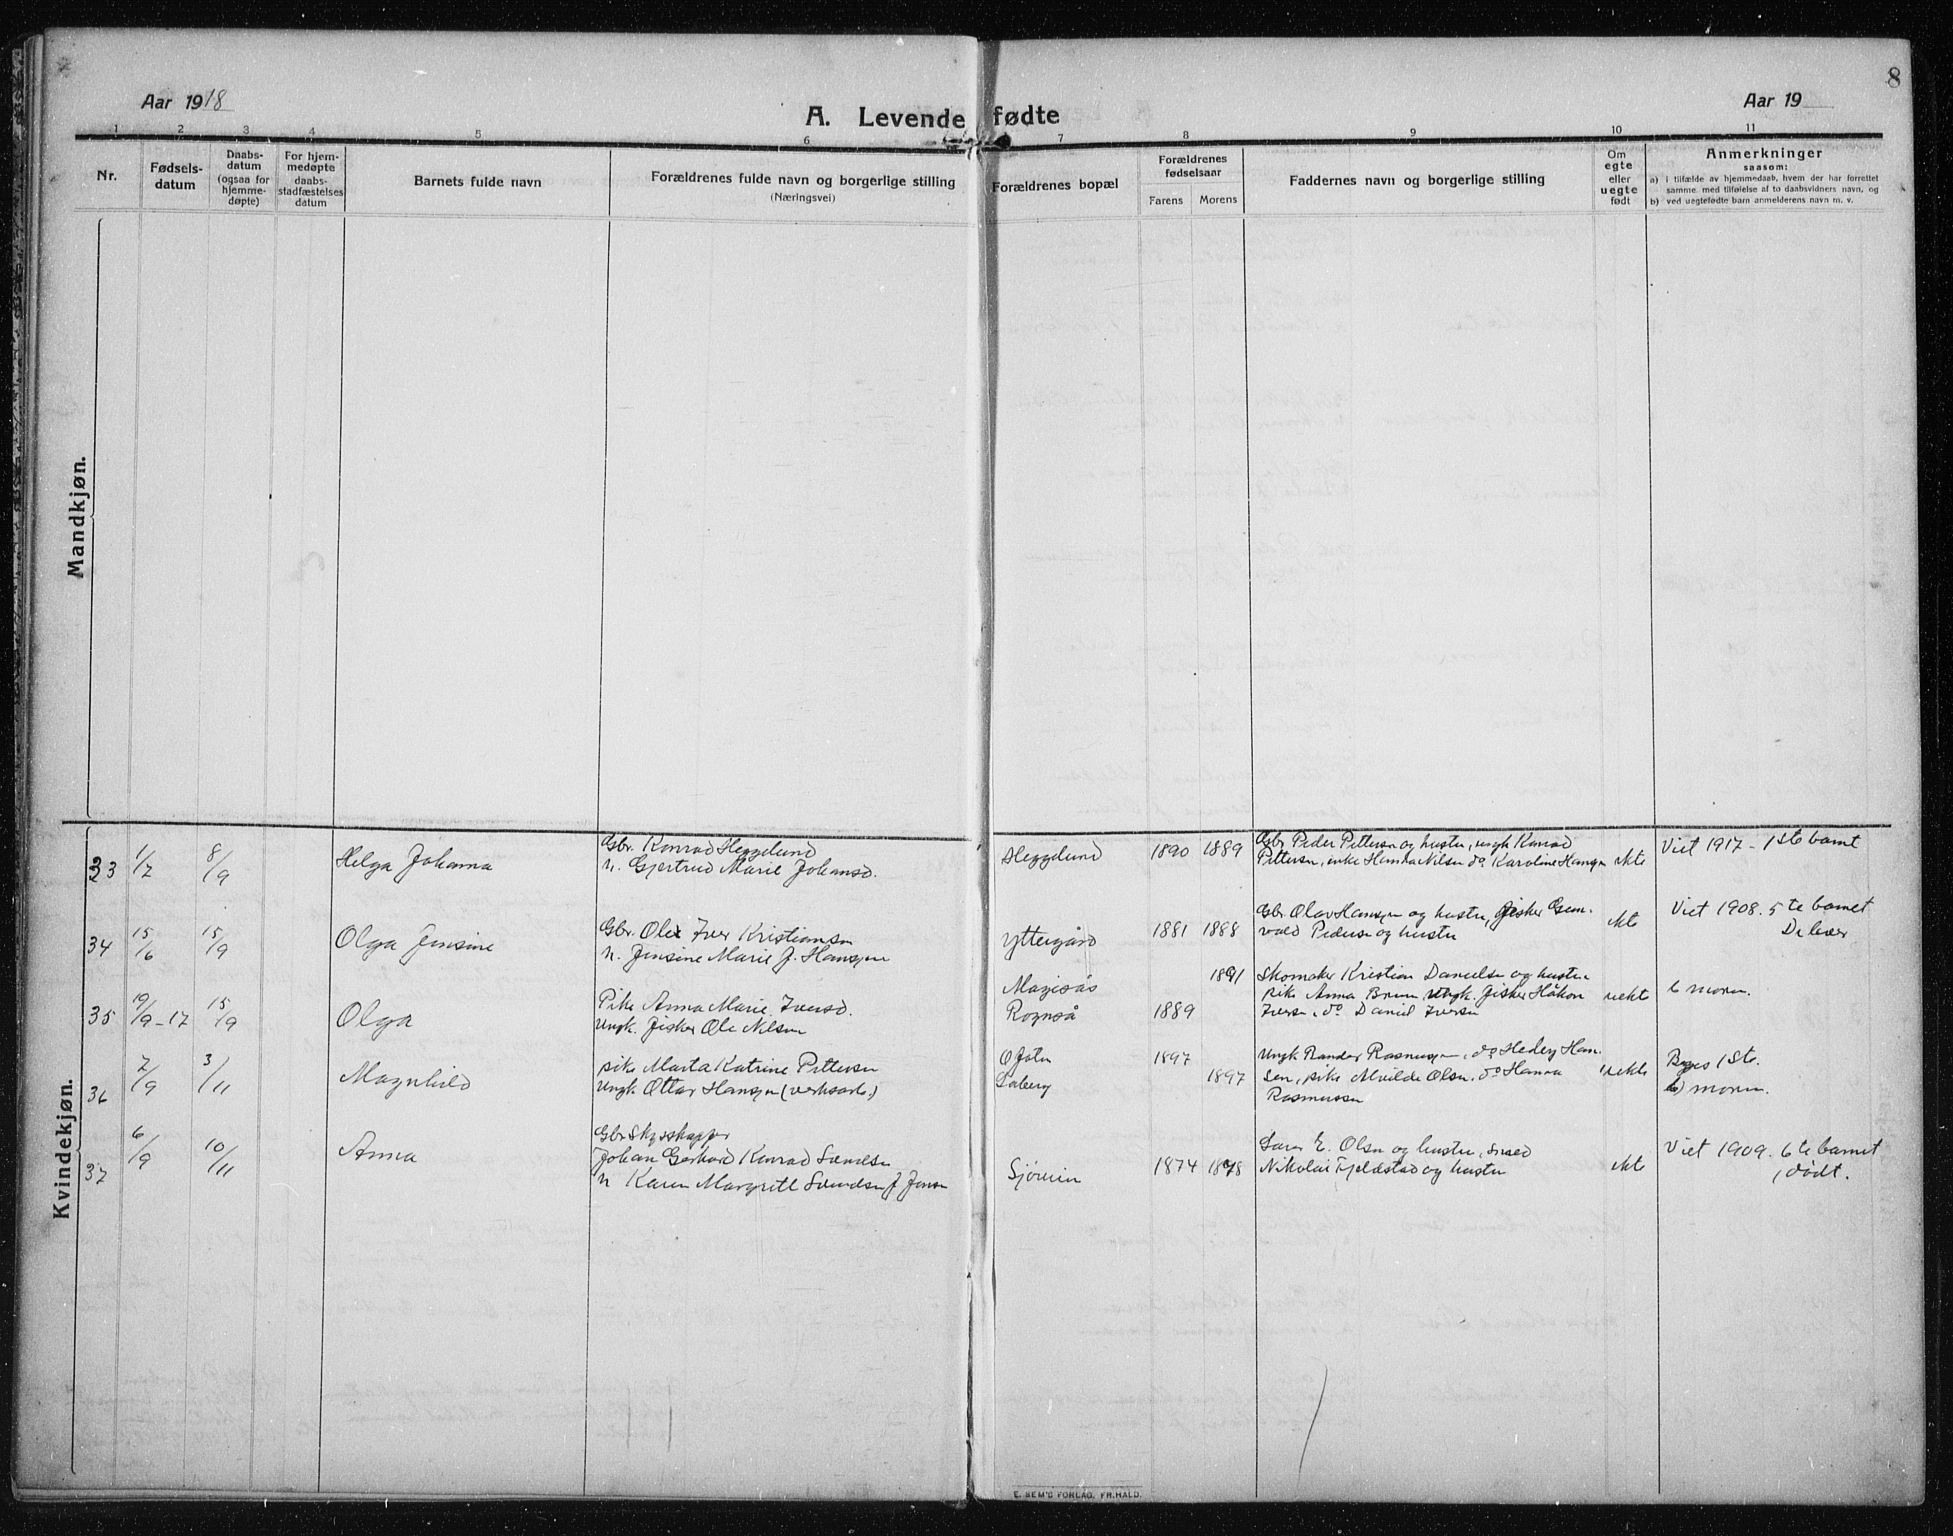 8
Aar 1918
A. Levende fødte
Aar 19
1 2 3 4 5 6 7 8 9 10 11
Nr.
Fødsels-
datum
Daabs-
datum
(ogsaa for
hjemme-
døpte)
For hjem-
medøpte
daabs-
stadfæstelses
datum
Barnets fulde navn
Forældrenes fulde navn og borgerlige stilling
(Næringsvei)
Forældrenes bopæl
Forældrenes
fødselsaar
Farens Morens
Faddernes navn og borgerlige stilling
Om
egte
eller
uegte
født
Anmerkninger
saasom:
a) i tilfælde av hjemmedaab, hvem der har forrettet
samme med tilføielse af to daabsvidners navn, og
b) ved uegtefødte barn anmelderens navn m. v.
Mandkjøn.
Kvindekjøn.
33 1/7 8/9 Helga Johanna
Gbr. Konrad Heggelund
h. Gjertrud Marie Johansd.
Heggelund 1890 1889
Gbr Peder Pettersen og hustru, ungk Konrad
Pettersen, enke Hanna Nilsen do Karoline Hansen
ekte
Viet 1917 - 1ste barnet
34 15/6 15/9 Olga Jensine
Gbr. Ole Iver Kristiansen
h. Jensine Marie f. Hansen
Yttergård 1881 1888
Gbr. Olav Hansen og hustru, fisker
vald Pedersen og hustru
ekte
Viet 1908. 5te barnet
De lever
35 19/9-17 15/9 Olga
Pike Anna Marie Iversd.
Ungk. fisker Ole Nilsen
Rognså
1891
1889
Skomaker Kristian Danielsen og hustru
pike Anna Brun, ungk. fisker Håkon
Iversen, do Daniel Iversen
uekte
b moren.
36 7/9 3/11 Magnhild
pike Marta Katrine Pettersen
ungk Ottar Hansen (verksarb.)
1897
1897
Ungk Rander Rasmussen, do Hedley Han-
sen, pike Mvilde Olsen. do Hanna
Rasmussen
uekte
Begges 1ste.
b) moren.
37 6/9 10/11 Anna
Gbr Skysskaffer
Johan Gerhard Konrad Svendsen
h Karen Margrete Svendsen f Jensen
Sjøveien 1874 1878
Lars E. Olsen og hustru,
Nikolai Fjeldstad og hustru
ekte
Viet 1909. 6te barnet
1 dødt.
E. SEM'S FORLAG, FR.HALD.